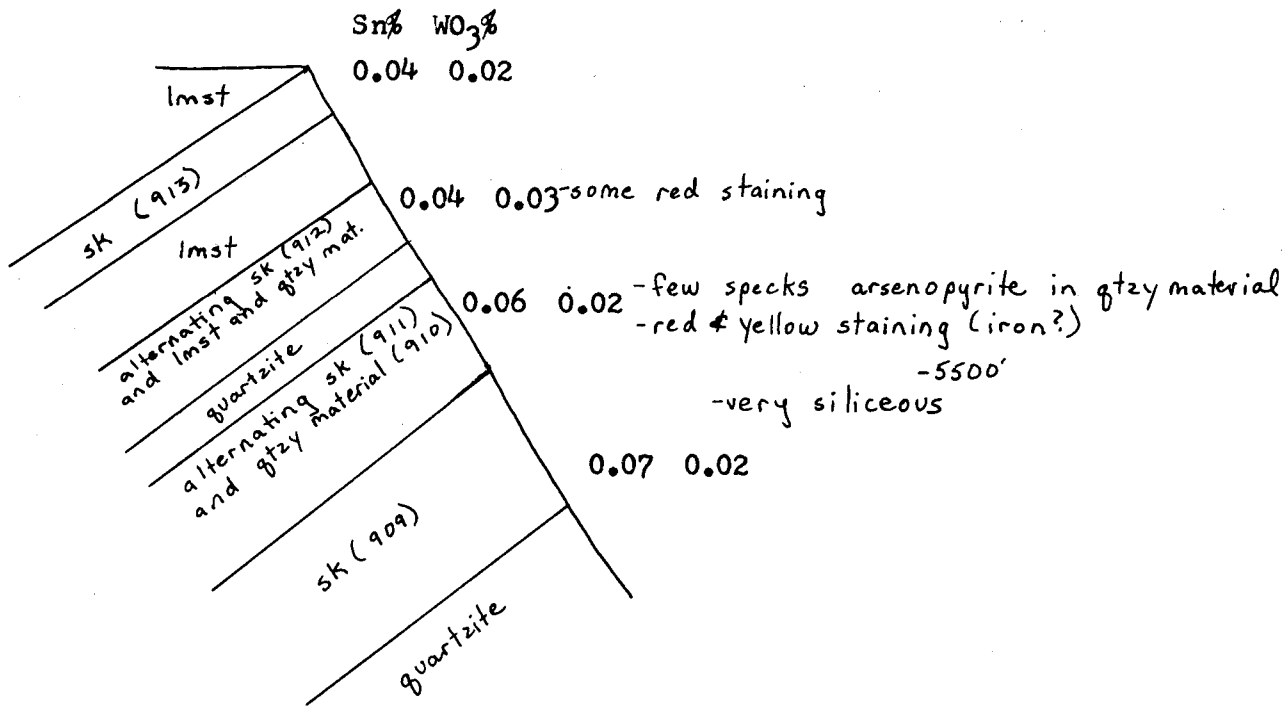 Sn% WO3%
0.04 0.02
lmst
sk (913)
0.04 0.03-some red staining
lmst
alternating sk (912)
and lmst and qtzy mat.
0.06 0.02 -few specks arsenopyrite in qtzy material
-red & yellow staining (iron?)
-5500'
-very siliceous
quartzite
alternating sk (911)
and qtzy material (910)
0.07 0.02
sk (909)
quartzite